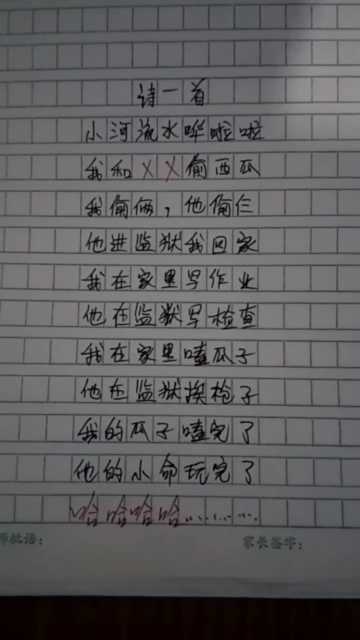 诗一首
小河流水哗啦啦
我和XX偷西瓜
我偷俩，他偷仨
他进监狱我回家
我在家里写作业
他在监狱写检查
我在家里嗑瓜子
他在监狱挨枪子
我的瓜子嗑完了
他的小命玩完了
哈哈哈哈………
师批语： 家长签字：